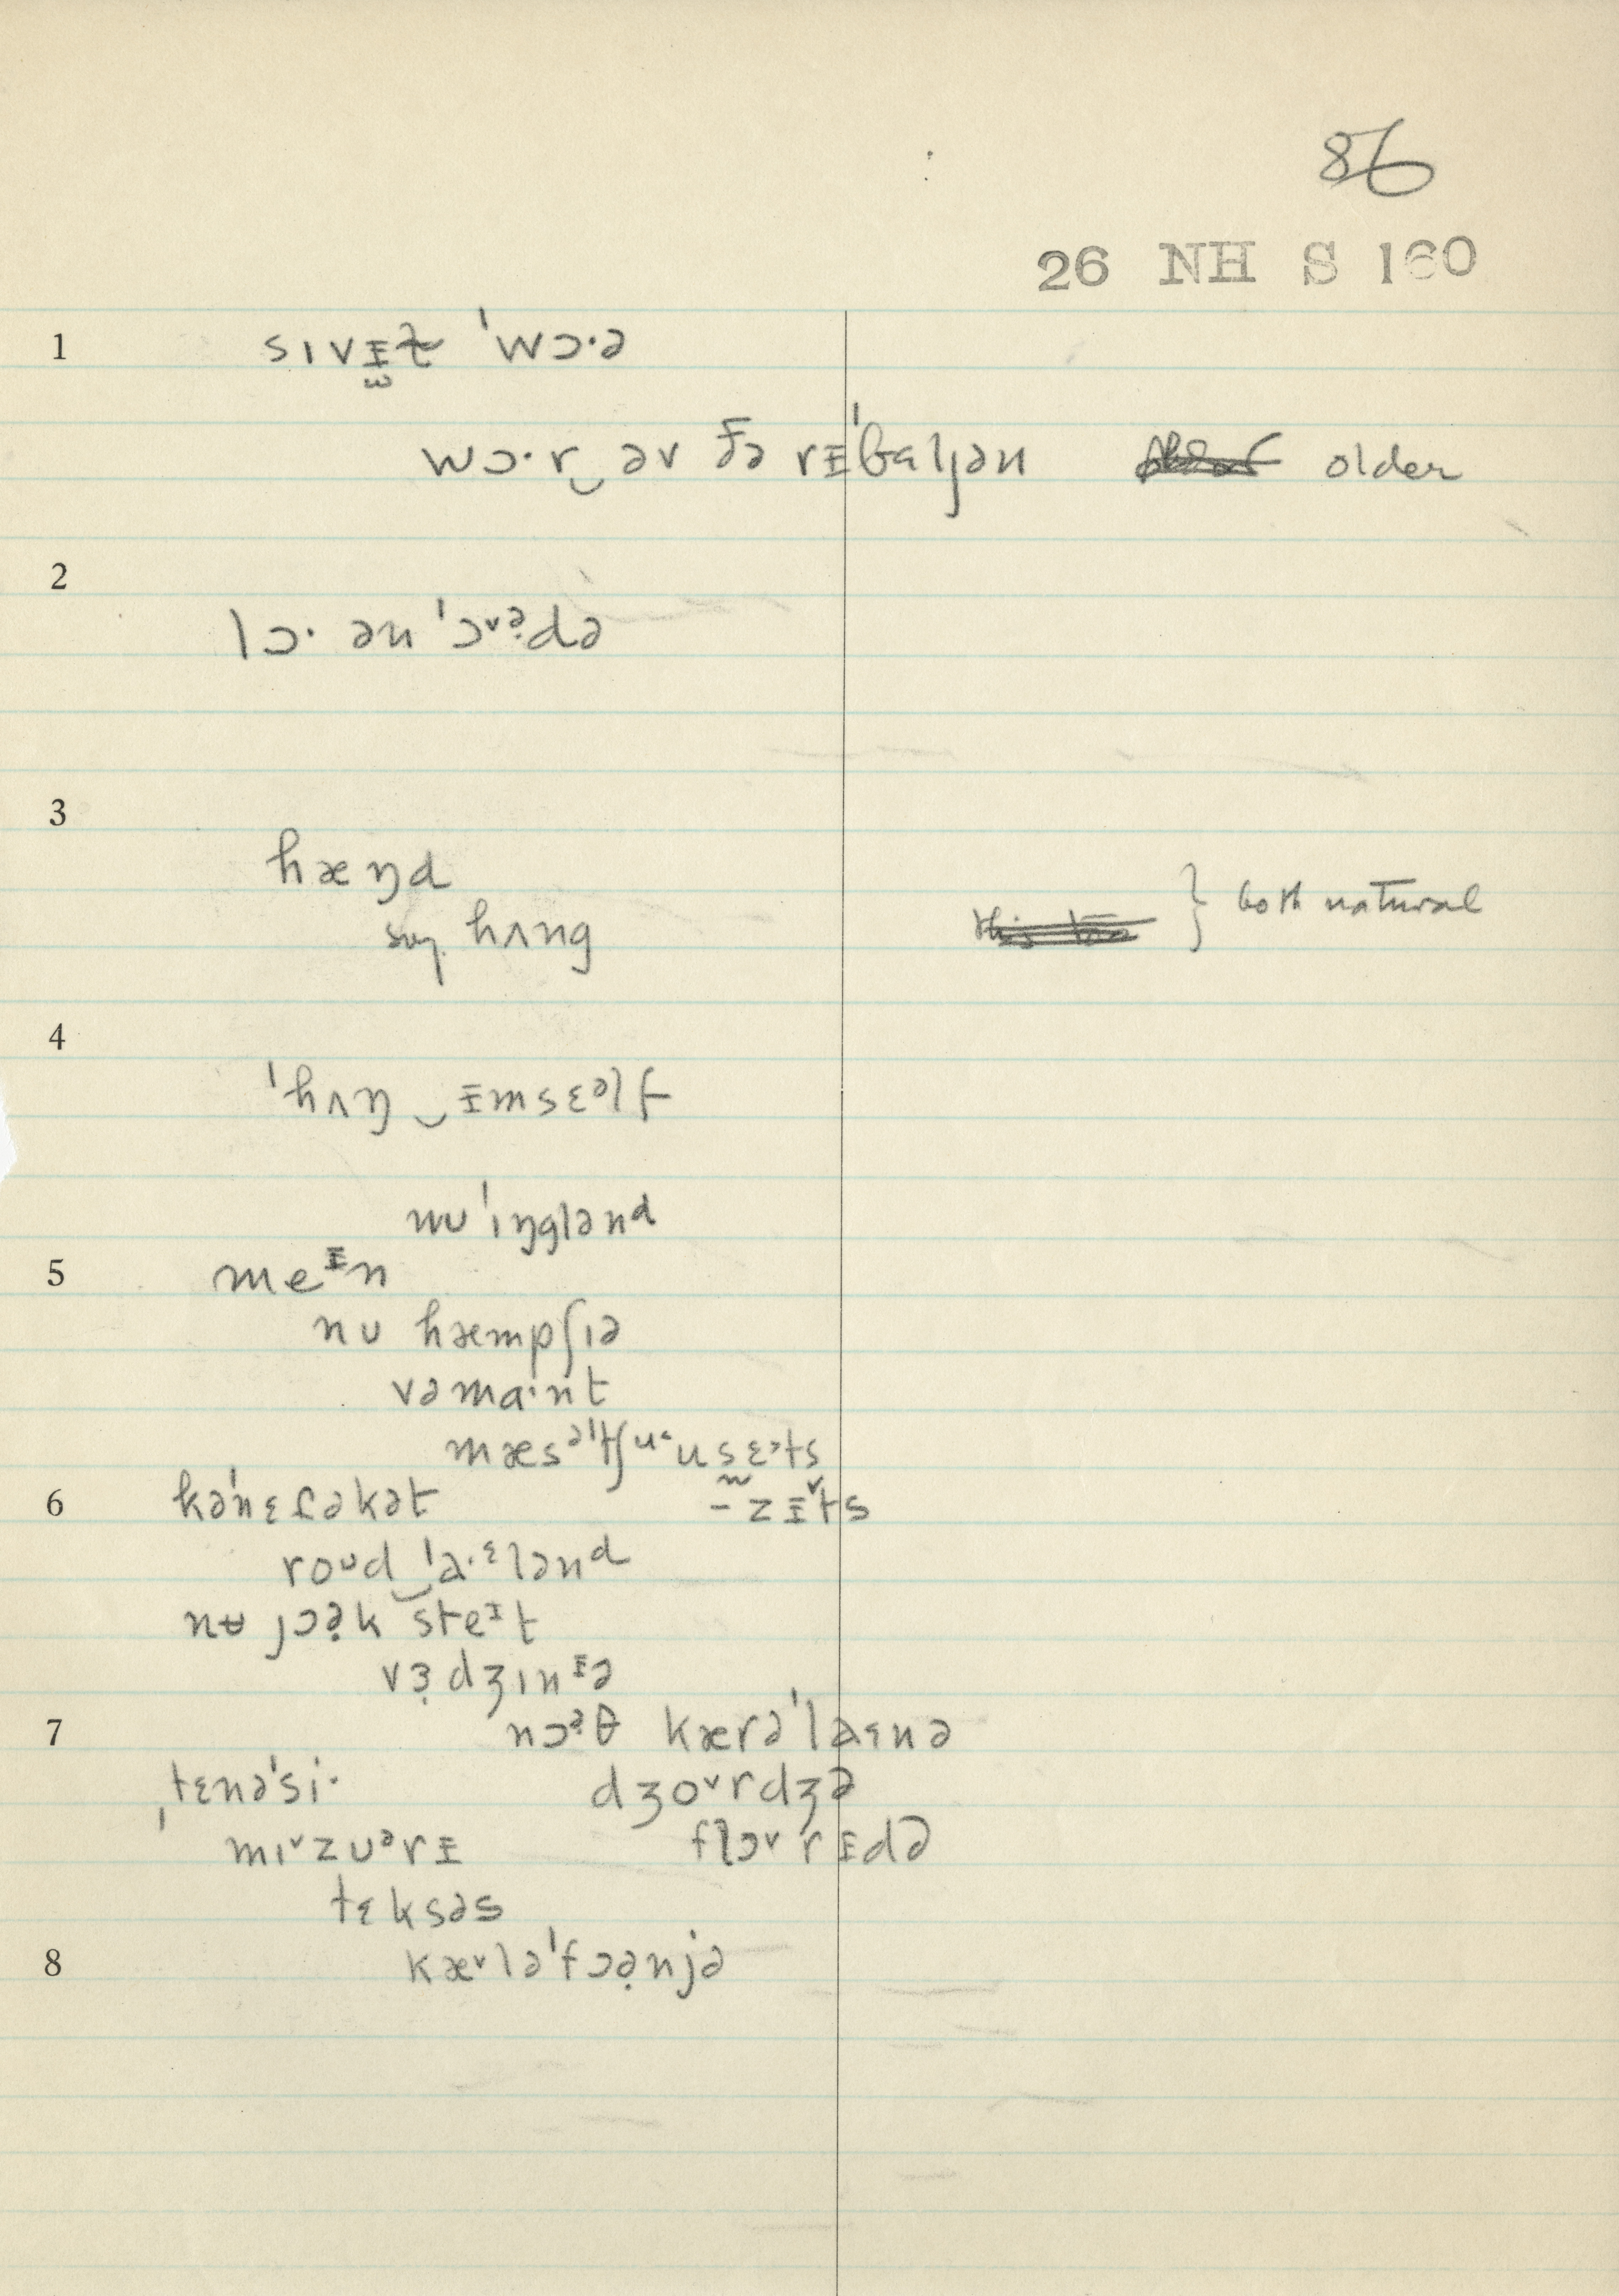 86
26 NH S 160
1 sɪvᵻɫ ˈwɔ·ə
wɔ·r‿əv ðə rᵻˈbɛljən older
2
lɔ· ən ˈɔ˅ə̣də
3
hæŋd
say hʌng } both natural
4
ˈhʌŋ‿ᵻmsɛᵊlf
nʊ ˈɪŋglənᵈ
5 meᵻn
nʊ hæmpʃɪə
vəma·ɪnt
mæsəˈtʃuˑusɛts
6 kəˈnɛɾəkət -zᵻ˅ts
roᴜd‿ˈa·ɛlənᵈ
nʉ jɔə̣k steᶦt
vɜ̣dʒɪnᵻə
7 nɔə̣θ kærəˈlaɪnə
ˌtɛnəˈsi· dʒo˅rdʒə
mɪ˅zʊᵊrᵻ flɔ˅rᵻdə
tɛksəs
8 kæ˅ləˈfɔə̣njə